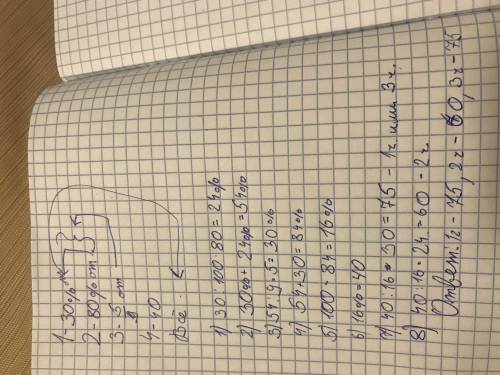 1 - 30% от
2 - 80% от
3 - 5 от
    9
4 - 40
Всё
1) 30 : 100 · 80 = 24%
2) 30% + 24% = 54%
3) 54 : 9 · 5 = 30%
4) 54 + 30 = 84%
5) 100 - 84 = 16%
6) 16% = 40
7) 40 : 16 · 30 = 75 - 1ч. или 3ч.
8) 40 : 16 · 24 = 60 - 2ч.
Ответ: 1ч - 75, 2ч - 60, 3ч - 75